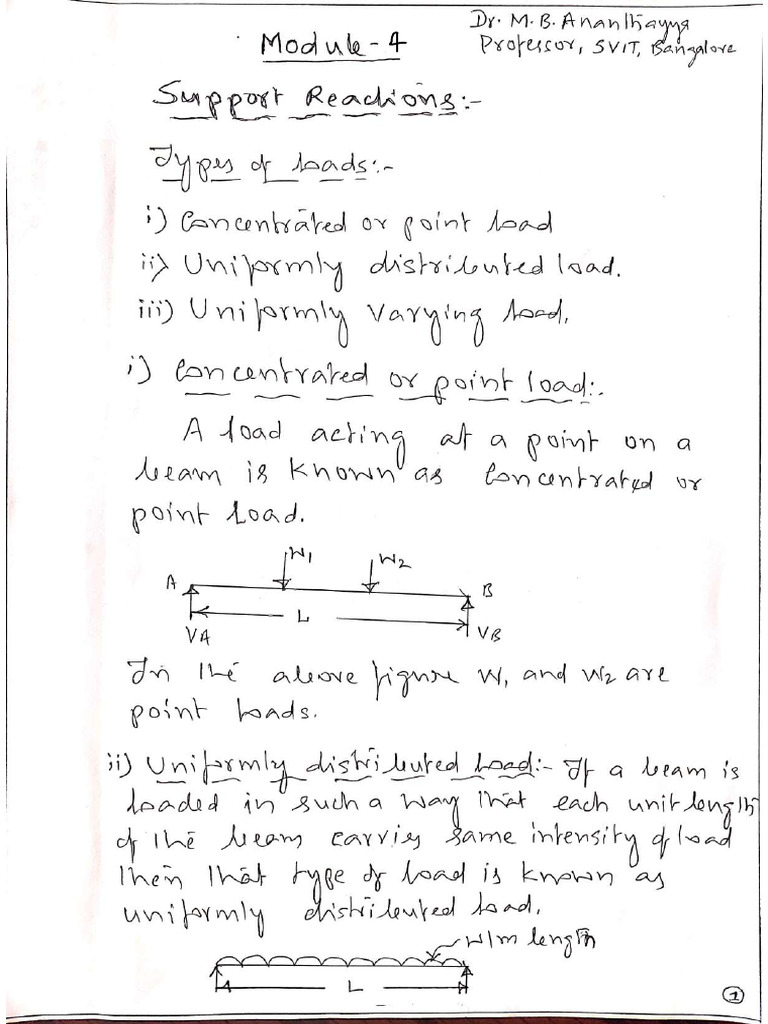 Dr. M. B. Ananthayya
Module-4
Professor, SVIT, Bangalore
Support Reactions:-
Types of Loads:-
i) Concentrated or point load
ii) Uniformly distributed load.
iii) Uniformly varying load.
i) Concentrated or point load:-
A load acting at a point on a
beam is known as Concentrated or
point Load.
W1 W2
A B
L
VA VB
In the above figure W1 and W2 are
point loads.
ii) Uniformly distributed Load:- If a beam is
loaded in such a way that each unit length
of the beam carries same intensity of load
then that type of load is known as
uniformly distributed load.
W/m length
L
1